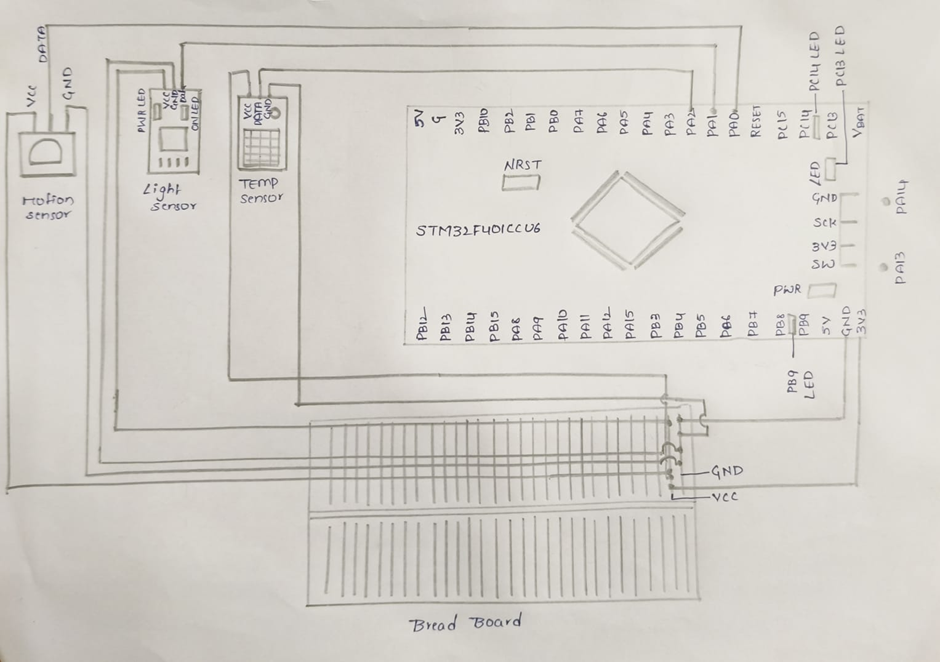 DATA
VCC
GND
Motion
sensor
PWR LED
VCC
GND
ON LED
Light
sensor
VCC
DATA
GND
TEMP
sensor
5V
G
3V3
PB10
PB2
PB1
PB0
PA7
PA6
PA5
PA4
PA3
PA2
PA1
PA0
RESET
PC15
PC14
PC13
VBAT
PC14 LED
PC13 LED
NRST
LED
STM32F401CCU6
GND
SCK
3V3
SW
PA14
PA13
PWR
PB12
PB13
PB14
PB15
PA8
PA9
PA10
PA11
PA12
PA15
PB3
PB4
PB5
PB6
PB7
PB8
PB9
5V
GND
3V3
PB9
LED
GND
VCC
Bread Board